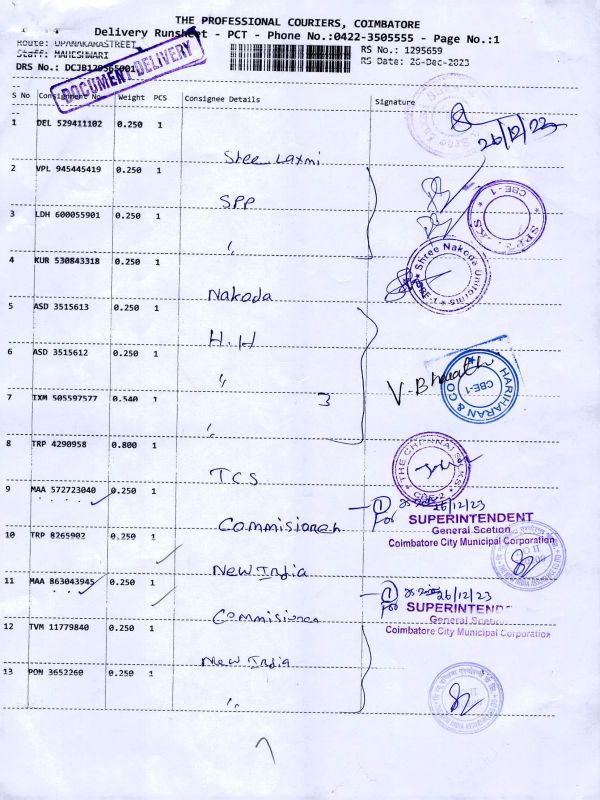 THE PROFESSIONAL COURIERS, COIMBATORE
Delivery Runsheet - PCT - Phone No.:0422-3505555 - Page No.:1
Route: OPANAKARASTREET
RS No.: 1295659
Staff: MAHESHWARI
RS Date: 26-Dec-2023
DRS No.:
DOCUMENT DELIVERY
S No Consignment No. Weight PCS Consignee Details Signature
1 DEL 529411102 0.250 1
26/12/23
Shree Laxmi
2 VPL 945445419 0.250 1
SPP
CBE-1
3 LDH 600055901 0.250 1
"
4 KUR 530843318 0.250 1
Shree Nakoda Uniforms
CBE-1
Nakoda
5 ASD 3515613 0.250 1
H.H
6 ASD 3515612 0.250 1
"
V. Bharathi
HARIHARAN & CO
CBE-1
7 TXM 505597577 0.540 1
3
"
8 TRP 4290958 0.800 1
THE CHENNAI SILKS
CBE-2
TCS
9 MAA 572723040 0.250 1
1 26/12/23
For SUPERINTENDENT
General Scetion
Coimbatore City Municipal Corporation
Commisioner
10 TRP 8265902 0.250 1
New India
11 MAA 863043945 0.250 1
1 26/12/23
For SUPERINTEND
General Scetion
Coimbatore City Municipal Corporation
Commisioner
12 TVM 11779840 0.250 1
New India
13 PON 3652260 0.250 1
"